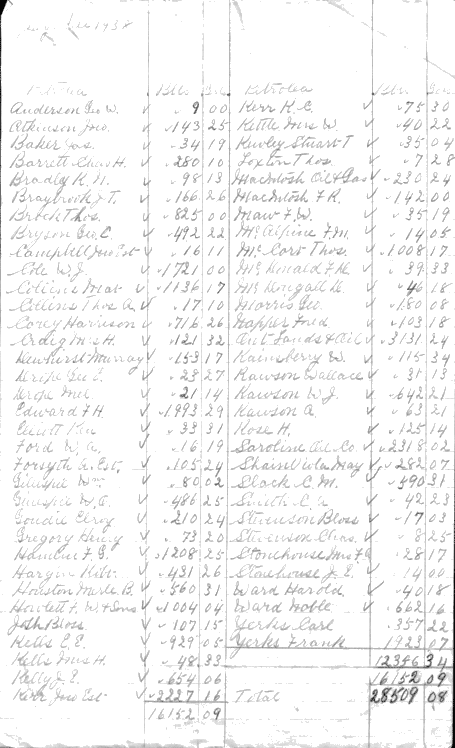 Aug Dec 1938
Petrolea Bls Gal
Anderson Geo W. 9 00
Atkinson Jno. 143 25
Baker Jas. 34 19
Barrett Chas H. 280 10
Bradley R. N. 98 13
Braybrook J. T. 166 26
Brock Thos. 825 00
Bryson Geo. C. 492 22
Campbell Jno Est 16 11
Cole W. J. 1721 00
Collins Mat 1136 17
Collins Thos A. 17 10
Corey Harrison 716 26
Craig Mrs H. 121 32
Dewhirst Murray 153 17
Dripe Geo E. 28 27
Dripe 21 14
Edward F H 1993 29
Elliott 33 31
Ford W. A. 16 19
Forsyth A. Est. 105 24
Gillespie Wm 80 02
Gillespie W. A. 486 25
Goudie Elroy 210 24
Gregory Henry 73 20
Hamilton F. G. 1208 25
Hargin 431 26
Houston Merle B. 560 31
Howlett F. W & Sons 1004 04
Josh Bloss 107 15
Kells E. E. 929 05
Kells Mrs H. 48 33
Kelly J. E. 654 06
Kerr Jno Est 2227 16
16152 09
Petrolea Bls Gals
Kerr K. C. 75 30
Kettle Mrs W. 40 22
Kewley Stuart T 35 04
Loxton Thos. 7 28
MacIntosh Oil & Gas 230 24
MacIntosh F R. 142 00
Maw F. W. 35 19
McAlpine F. M. 14 05
McCort Thos. 1008 17
McDonald F. R. 39 33
McDougall D. 46 18
Morris Geo. 180 08
Napper Fred 103 18
Ont Lands & Oil 3131 24
Rainsberry W. 115 34
Rawson Wallace 31 13
Rawson W. J. 642 21
Rawson A. 63 21
Rose H. 125 14
Saroline Oil Co. 2318 02
Shain Vila May 282 07
Slack C. M. 390 31
Smith C. A 42 23
Stevenson Bloss 17 03
Stevenson Chas. 8 25
Stonehouse Mrs F. A 28 17
Stonehouse J. E. 14 00
Ward Harold 40 18
Ward Noble 662 16
Yerks Carl 357 22
Yerks Frank 1923 07
12356 34
16152 09
Total 28509 08